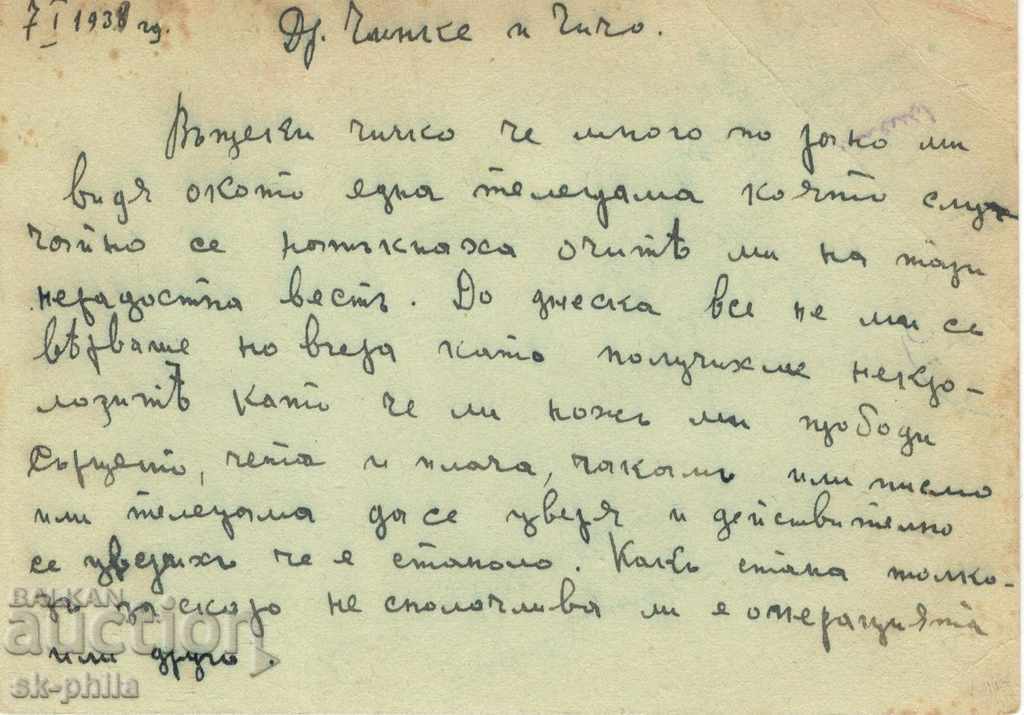 7 I 1938 гд.
Др. Чинке и Чичо.
Въпреки чичко че много по рано ми
видя окото една телеграма която слу
чайно се натъкнаха очитѣ ми на тази
нерадостна вестъ. До днеска все не ми се
вѣрваше но вчера като получихме некро-
лозитѣ като че ли ножъ ми прободи
сърцето, чета и плача, чакамъ или писмо
или телеграма да се уверя и действително
се уверихъ че е станоло. Какъ стана толко-
за скоро не сполочлива ли е операцията
или друго.
BALKAN
auction
sk-phila